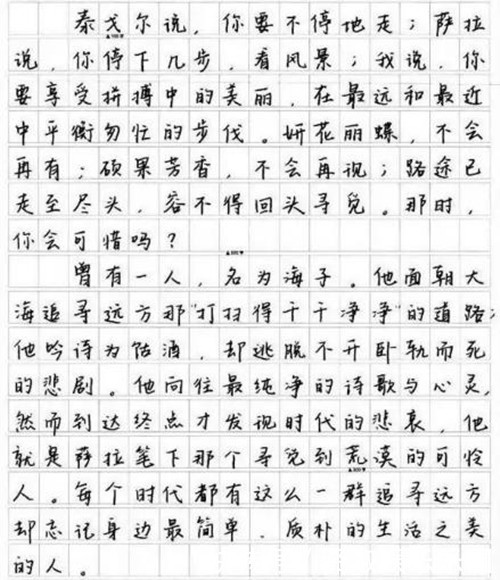 泰戈尔说，你要不停地走；萨拉
说，你停下几步，看风景；我说，你
要享受拼搏中的美丽，在最远和最近
中平衡匆忙的步伐。妍花丽蝶，不会
再有；硕果芳香，不会再现；路途已
走至尽头，容不得回头寻觅。那时，
你会可惜吗？
曾有一人，名为海子。他面朝大
海追寻远方那“打扫得干干净净”的道路；
他吟诗为酤酒，却逃脱不开卧轨而死
的悲剧。他向往最纯净的诗歌与心灵，
然而到达终点才发现时代的悲哀，他
就是萨拉笔下那个寻觅到荒漠的可怜
人。每个时代都有这么一群追寻远方
却忘记身边最简单、质朴的生活之美
的人。